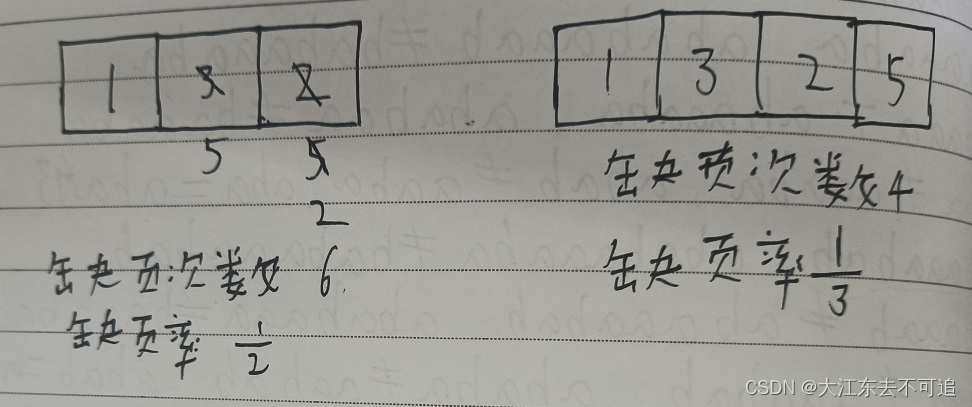 1 3 2
5 5
2
缺页次数 6
缺页率 1/2
1 3 2 5
缺页次数4
缺页率 1/3
CSDN @大江东去不可追